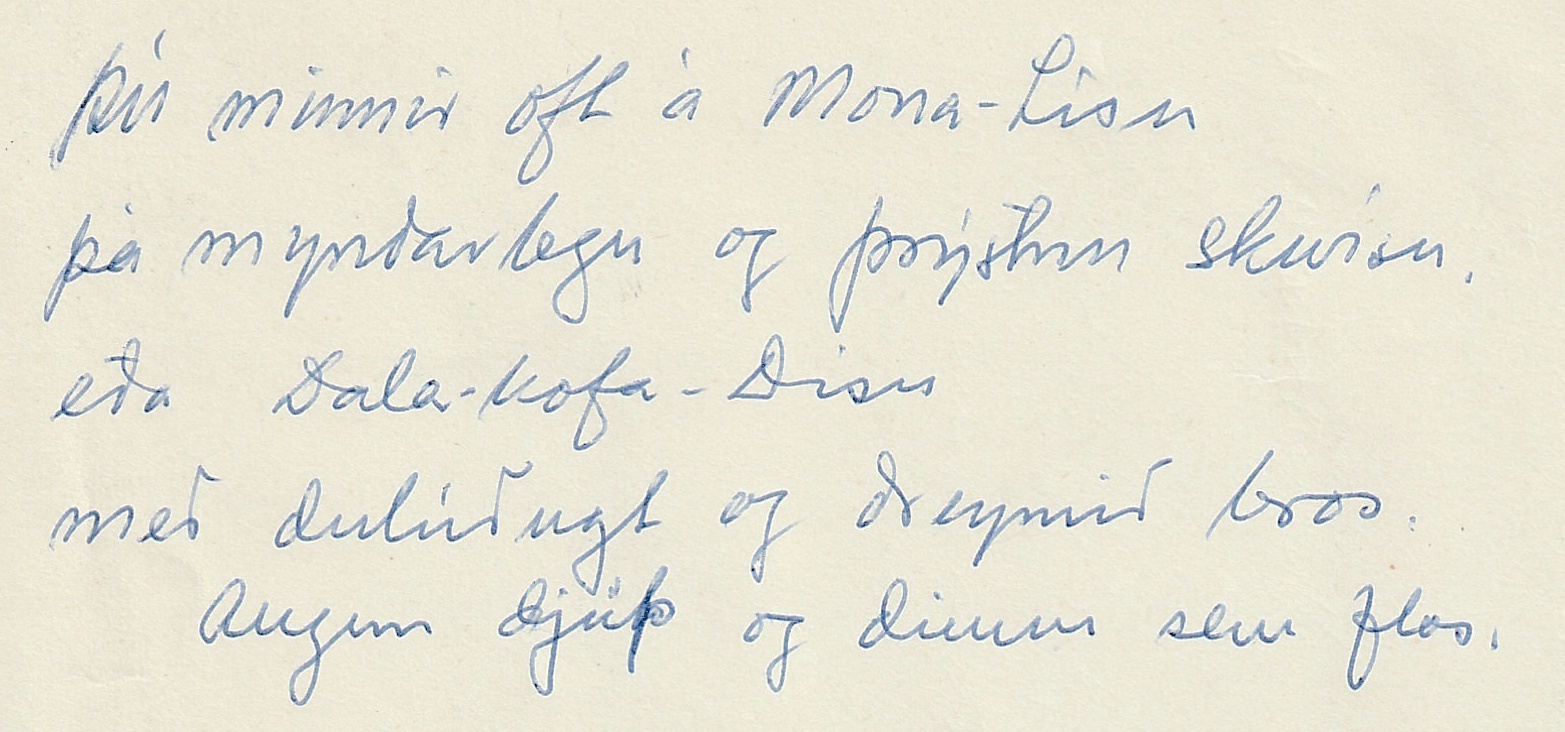 Þú minnir oft á Mona-Lisu
þá myndarlegu og þrýstnu skvísu,
eða Dala-kofa-Dísu
með dulúðugt og dreymið bros.
Augun djúp og dimm sem flos.